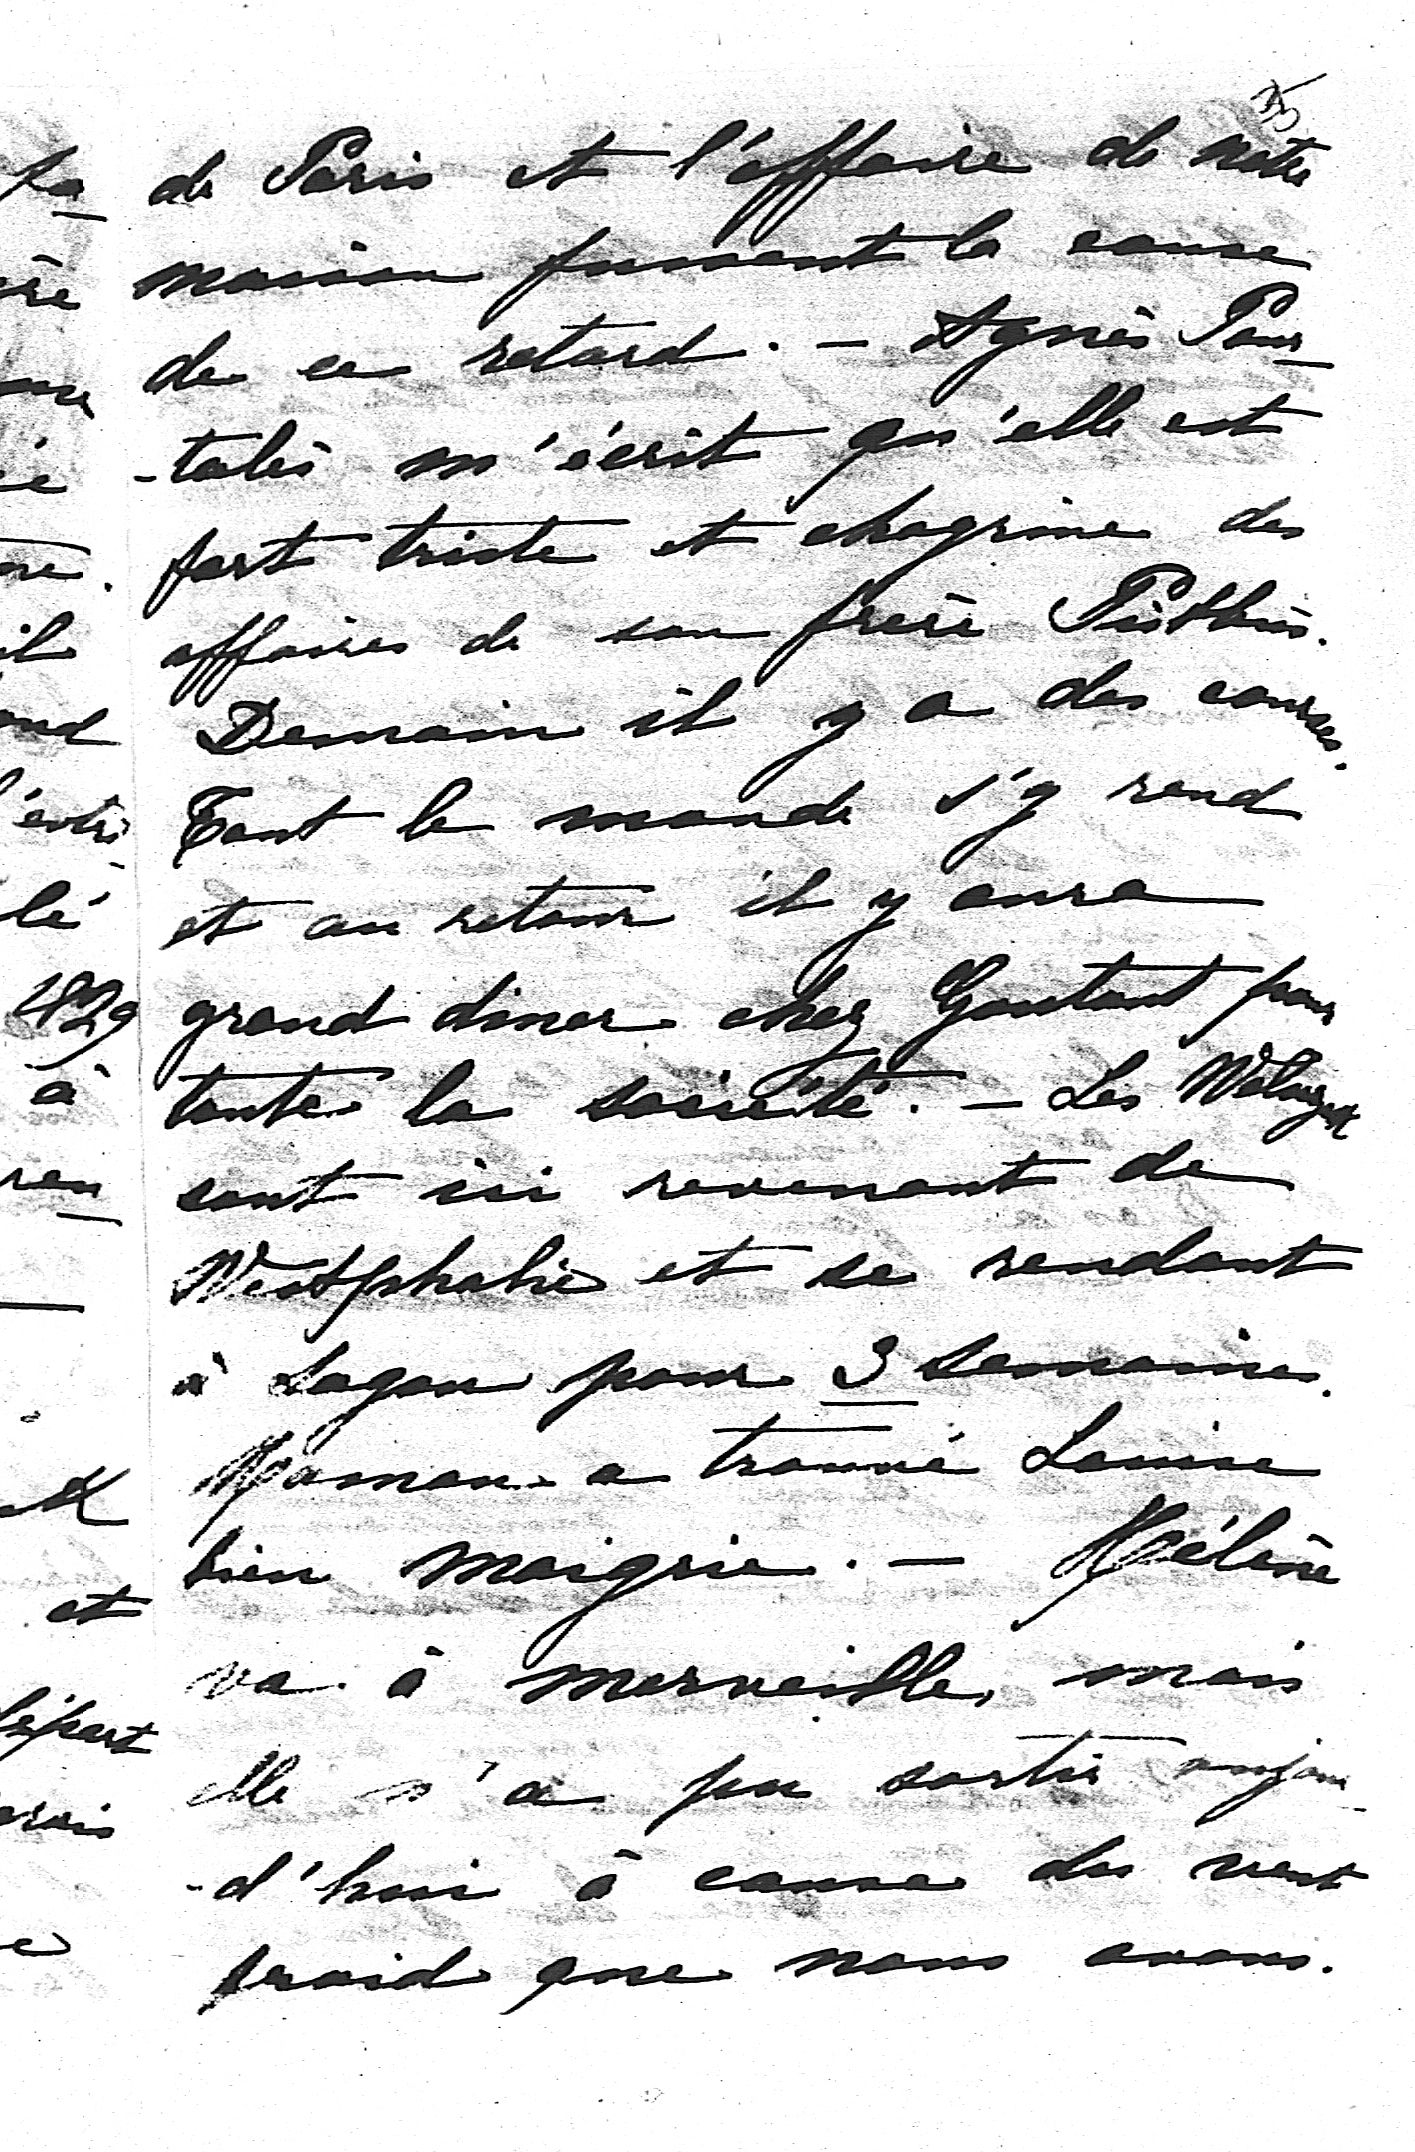 de Paris et l'affaire de notre
maison furent la cause
de ce retard. — Agnès Pour-
-talès m'écrit qu'elle est
fort triste et chagrine des
affaires de son frère
Demain il y a des courses.
Tout le monde s'y rend
et au retour il y aura
grand diner chez Gontaut pour
toute la société. — Les
sont ici revenant de
Westphalie et se rendant
à Sagan pour 3 semaines.
Maman a trouvé Louise
bien maigrie. — Hélène
va à merveille, mais
elle n'a pu sortir aujour-
-d'hui à cause du vent
froid que nous avons.